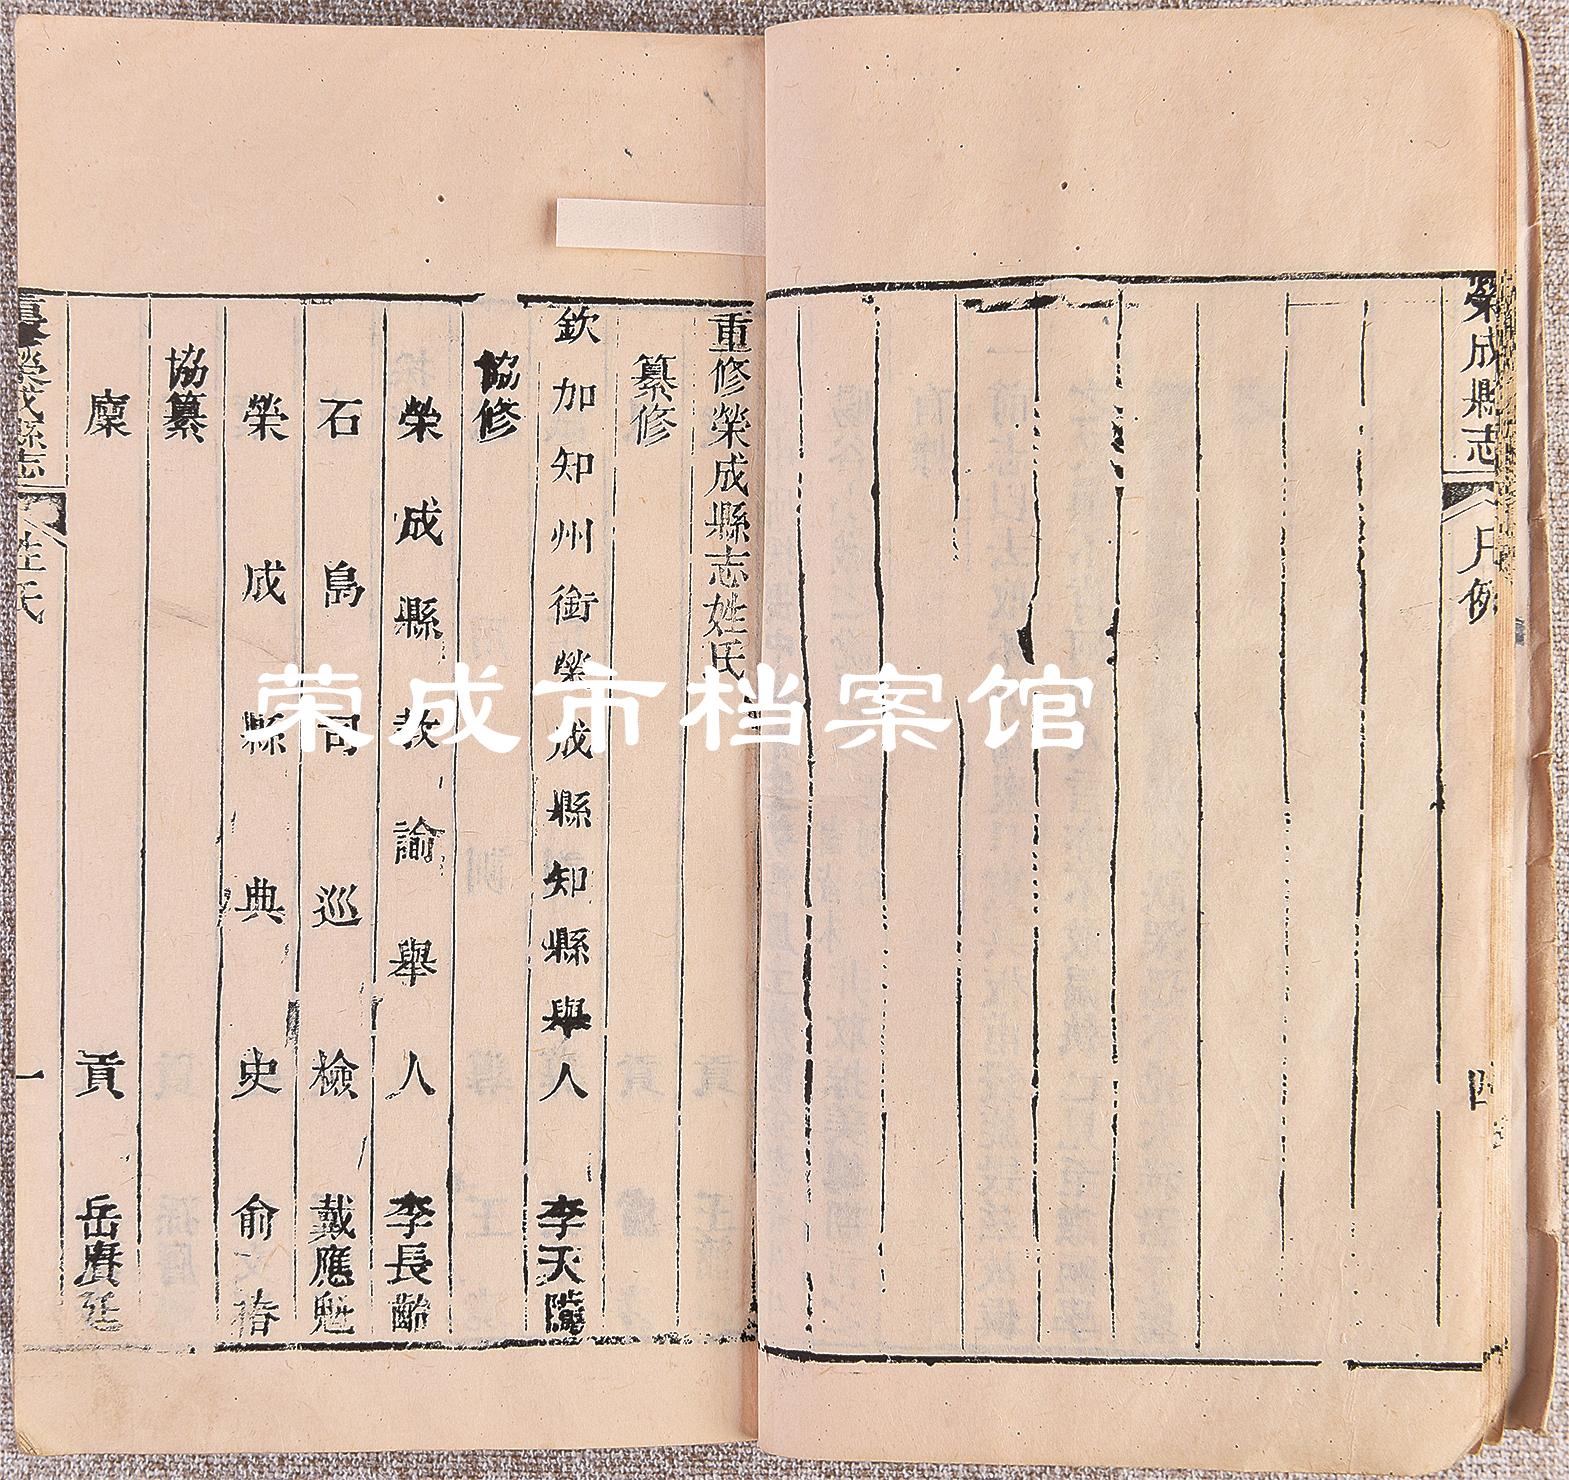 榮成縣志
凡例
四
重修榮成縣志姓氏
纂修
欽加知州銜榮成縣知縣舉人 李天隲
協修
榮成縣教諭舉人 李長齡
石島司巡檢 戴應魁
榮成縣典史 俞椿
協纂
廩貢 岳賡廷
重修榮成縣志
姓氏
一
荣成市档案馆